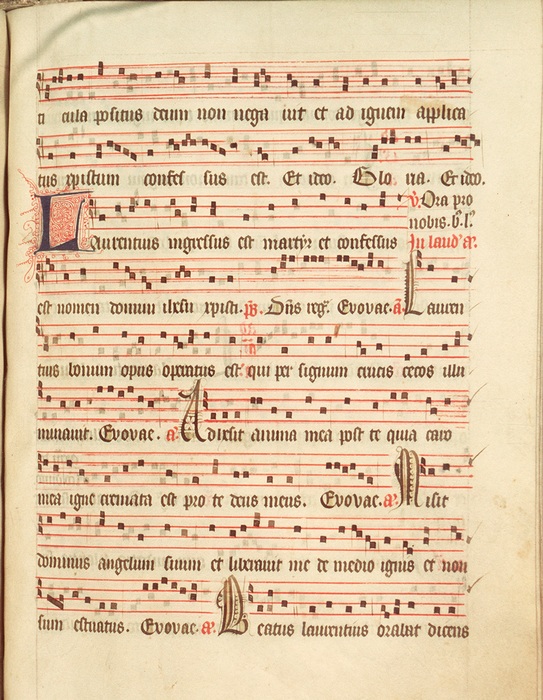 ti cula positus deum non nega uit et ad ignem applica
tus xpistum confes sus est. Et ideo. Glo ria. Et ideo.
℣. Ora pro
nobis. b. l.
Laurentius ingressus est martyr et confessus In laud' a.
est nomen domini ihesu xpisti. ps. Dns reg. Evovae. a. Lauren
tius bonum opus operatus est qui per signum crucis cecos illu
minauit. Evovae. a. Adhesit anima mea post te quia caro
mea igne cremata est pro te deus meus. Evovae. a. Misit
dominus angelum suum et liberauit me de medio ignis et non
sum estuatus. Evovae. a. Beatus laurentius orabat dicens